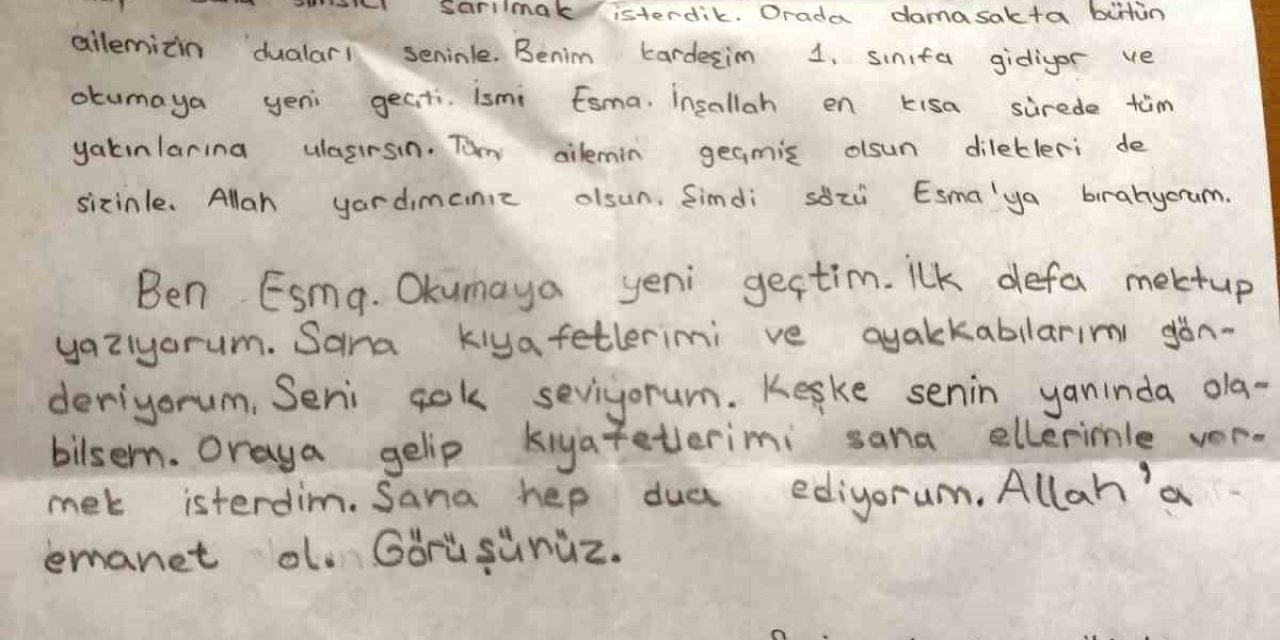 sarılmak isterdik. Orada damasakta bütün
ailemizin duaları seninle. Benim kardeşim 1. sınıfa gidiyor ve
okumaya yeni geçti. İsmi Esma. İnşallah en kısa sürede tüm
yakınlarına ulaşırsın. Tüm ailemin geçmiş olsun dilekleri de
sizinle. Allah yardımcınız olsun. Şimdi sözü Esma'ya bırakıyorum.
Ben Esma. Okumaya yeni geçtim. İlk defa mektup
yazıyorum. Sana kıyafetlerimi ve ayakkabılarımı gön-
deriyorum. Seni çok seviyorum. Keşke senin yanında ola-
bilsem. Oraya gelip kıyafetlerimi sana ellerimle ver-
mek isterdim. Sana hep dua ediyorum. Allah'a
emanet ol. Görüşünüz.